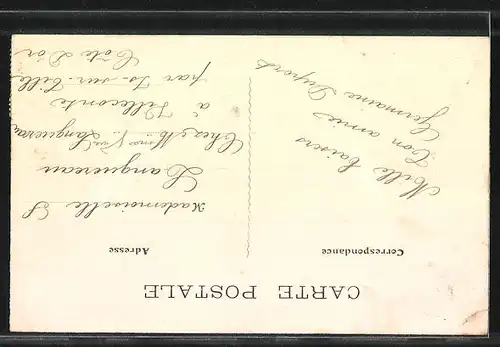 CARTE POSTALE
Correspondance
Adresse
Mille baisers
Ton amie
Germaine Dupont
Mademoiselle S
Langureau
Chez M. Vve Langureau
à Villecomte
par Is-sur-Tille
Côte d'Or